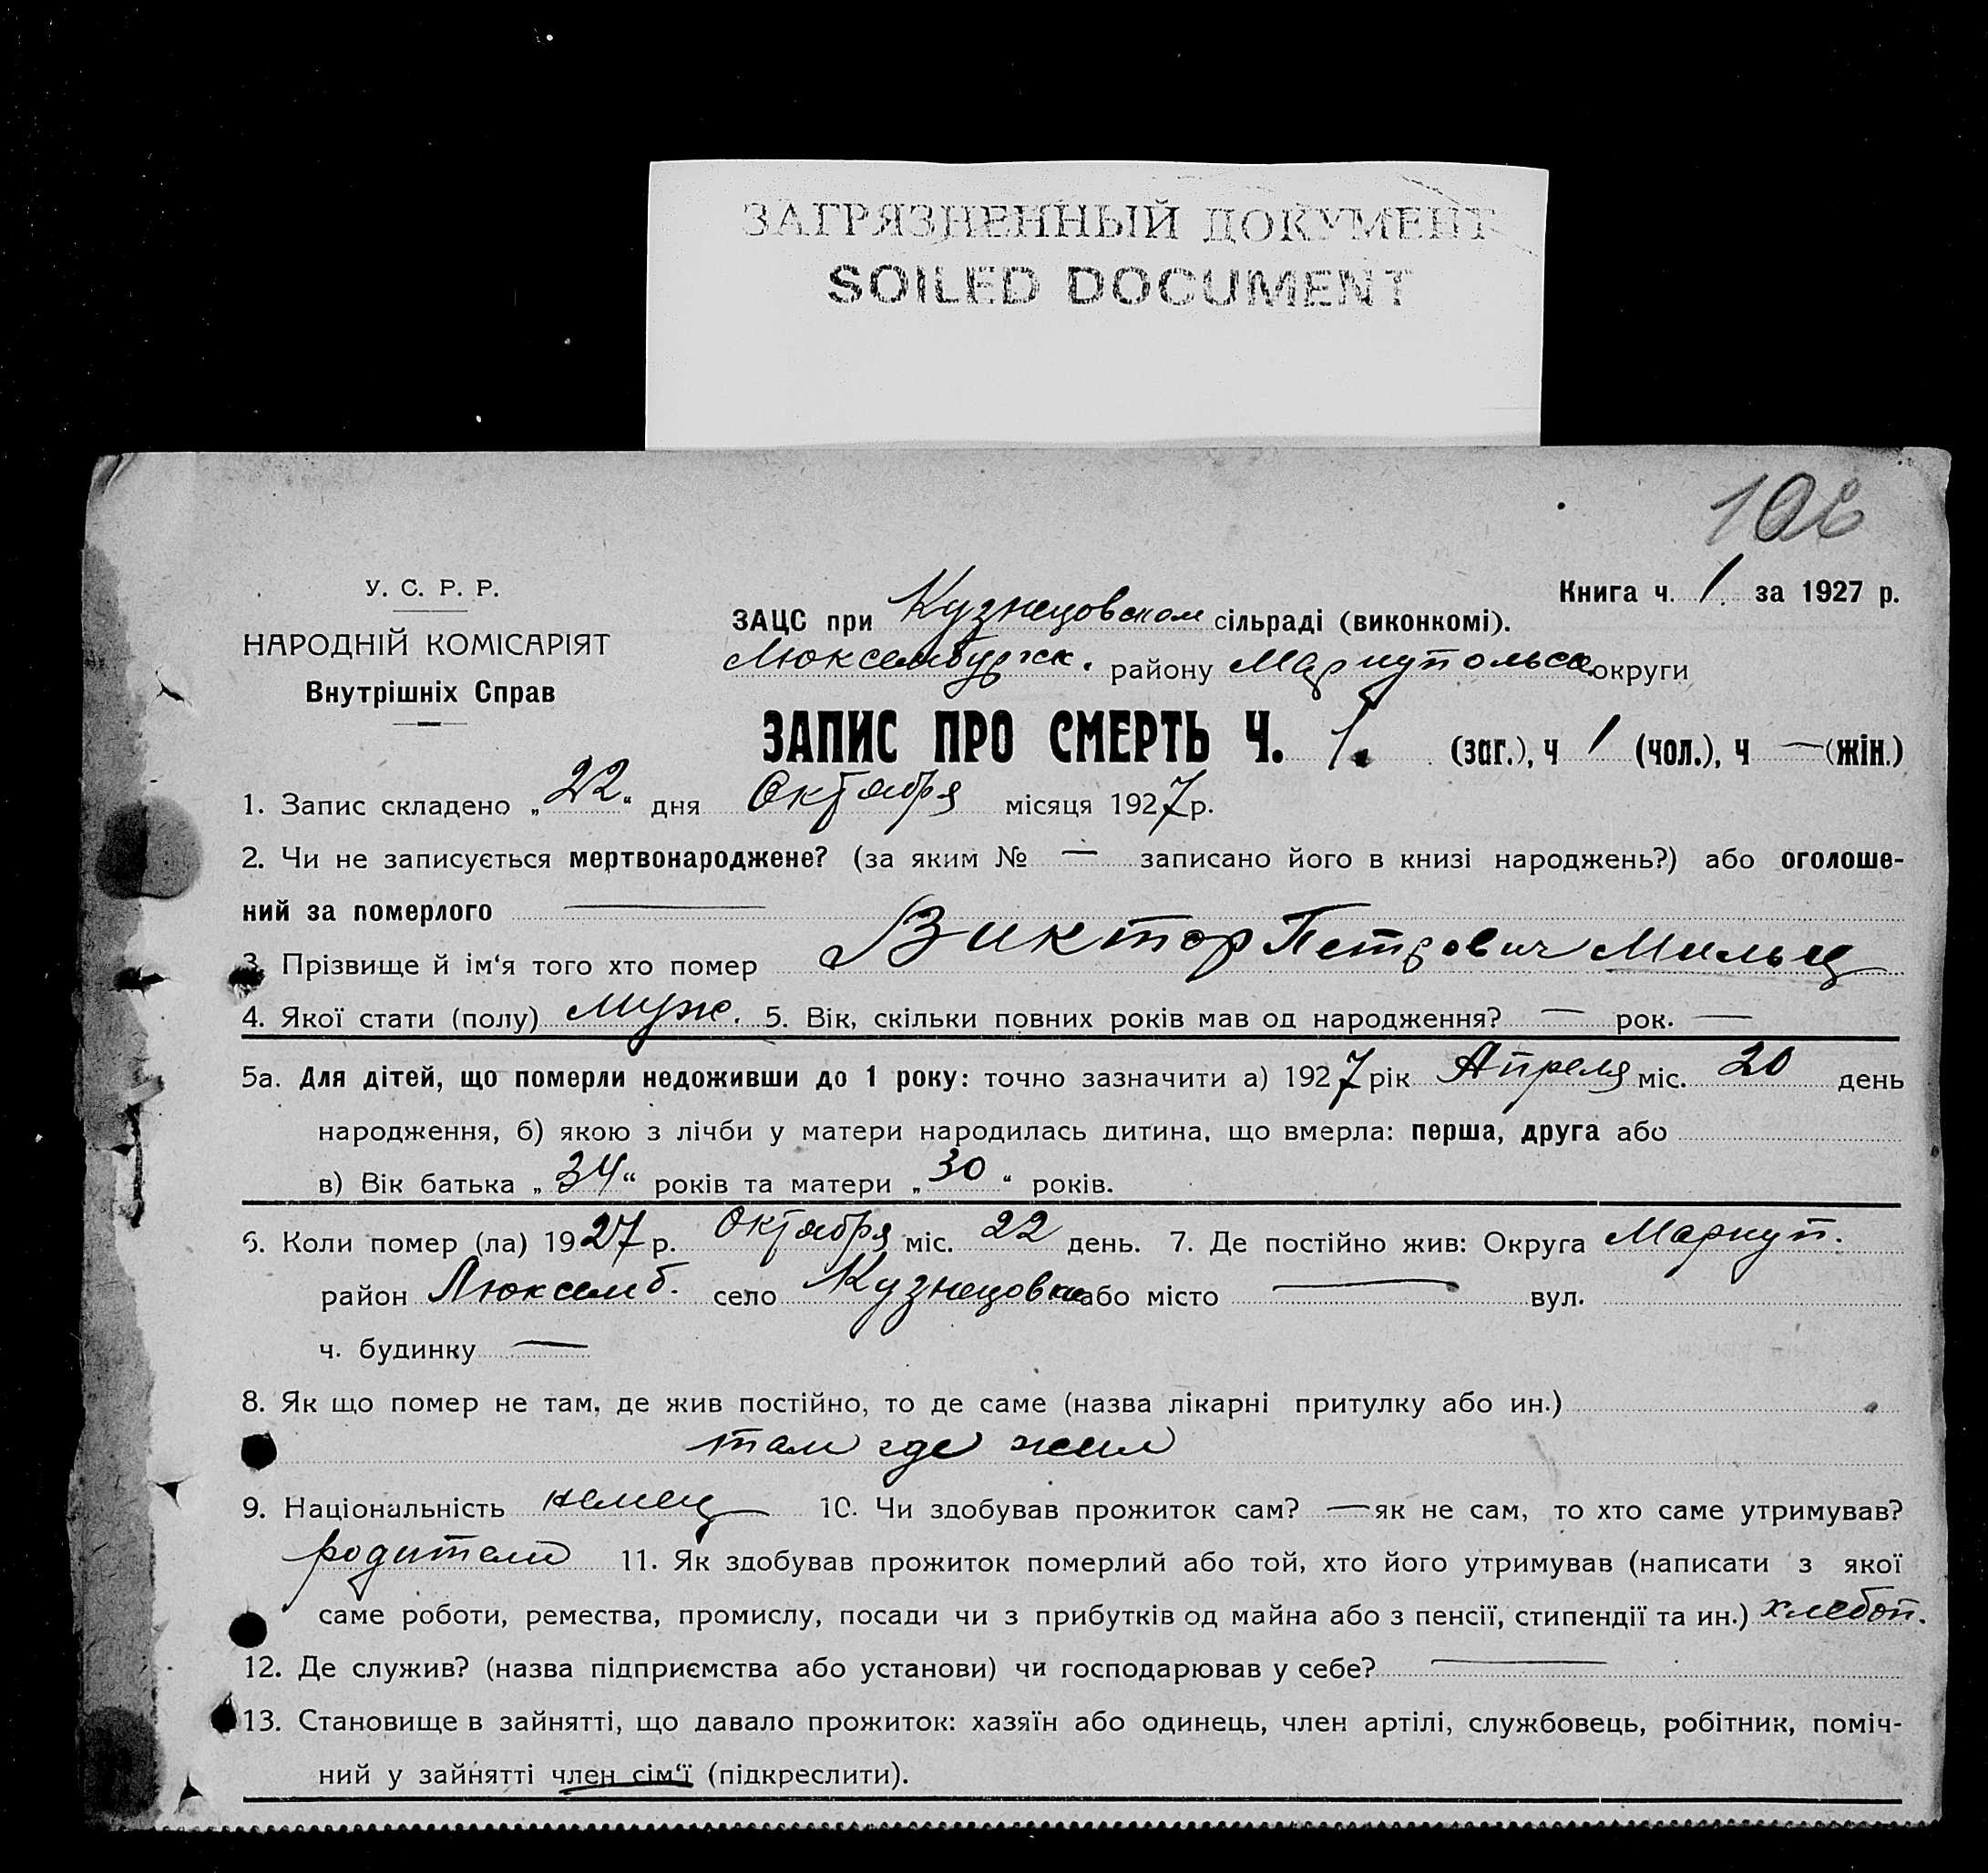 ЗАГРЯЗНЕННЫЙ ДОКУМЕНТ
SOILED DOCUMENT
106
У. С. Р. Р.
НАРОДНІЙ КОМІСАРІЯТ
Внутрішніх Справ
Книга ч. 1. за 1927 р.
ЗАЦС при Кузнецовском сільраді (виконкомі).
Люксембургск. району Мариупольск. округи
ЗАПИС ПРО СМЕРТЬ Ч. 1. (заг.), ч 1 (чол.), ч — (жін.)
1. Запис складено „22“ дня Октября місяця 1927 р.
2. Чи не записується мертвонароджене? (за яким № — записано його в книзі народжень?) або оголоше-
ний за померлого —
3. Прізвище й ім‘я того хто помер Виктор Петрович Мильц
4. Якої стати (полу) муж. 5. Вік, скільки повних років мав од народження? — рок. —
5а. Для дітей, що померли недоживши до 1 року: точно зазначити а) 1927 рік Апреля міс. 20 день
народження, б) якою з лічби у матери народилась дитина, що вмерла: перша, друга або
в) Вік батька „34“ років та матери „30“ років.
6. Коли помер (ла) 1927 р. Октября міс. 22 день. 7. Де постійно жив: Округа Мариуп.
район Люксемб. село Кузнецовка або місто — вул.
ч. будинку —
8. Як що помер не там, де жив постійно, то де саме (назва лікарні притулку або ин.)
там где жил
9. Національність немец 10. Чи здобував прожиток сам? — як не сам, то хто саме утримував?
родители 11. Як здобував прожиток померлий або той, хто його утримував (написати з якої
саме роботи, ремества, промислу, посади чи з прибутків од майна або з пенсії, стипендії та ин.) хлебоп.
12. Де служив? (назва підприємства або установи) чи господарював у себе? —
13. Становище в зайнятті, що давало прожиток: хазяїн або одинець, член артілі, службовець, робітник, поміч-
ний у зайнятті член сім‘ї (підкреслити).